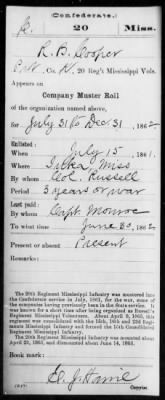 (Confederate.)
C. 20 Miss.
R. B. Cooper
Co. K, 20 Reg't Mississippi Vols.
Appears on
Company Muster Roll
of the organization named above,
for July 31 to Dec. 31, 1862
Enlisted:
When July 15, 1861.
Where Iuka Miss
By whom Col. Russell
Period 3 years or war
Last paid:
By whom Capt. Monroe
To what time June 30, 1862
Present or absent Present
Remarks:
The 20th Regiment Mississippi Infantry was mustered into
the Confederate service in July, 1861, for the war, some of the
companies having previously been in the State service. It
was known for a short time after being organized as Russell's
Regiment Mississippi Volunteers. About April 9, 1865, this
regiment was consolidated with the
Regiments Mississippi Infantry and formed the 15th Consolidated
Regiment Mississippi Infantry.
The 20th Regiment Mississippi Infantry was mounted about
April 1863, and dismounted about June 14, 1864.
Book mark:
Copyist.